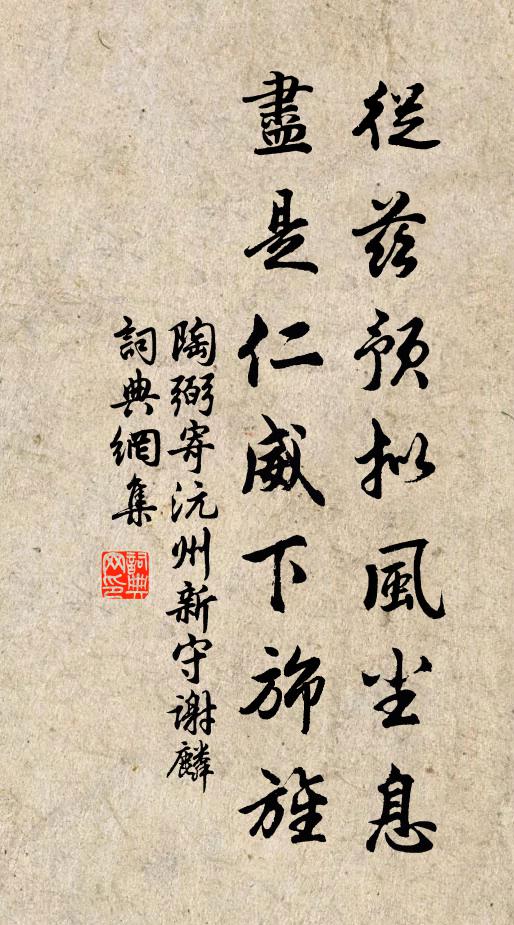 從茲預拟風尘息
盡是仁威下旆旌
陶弼寄沅州新守谢麟
詞典網集
詞典网印